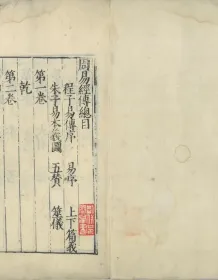 周易經傳總目
程子易傳序 易序 上下篇義
朱子易本義圖 五贊 筮儀
第一卷
乾
第二卷